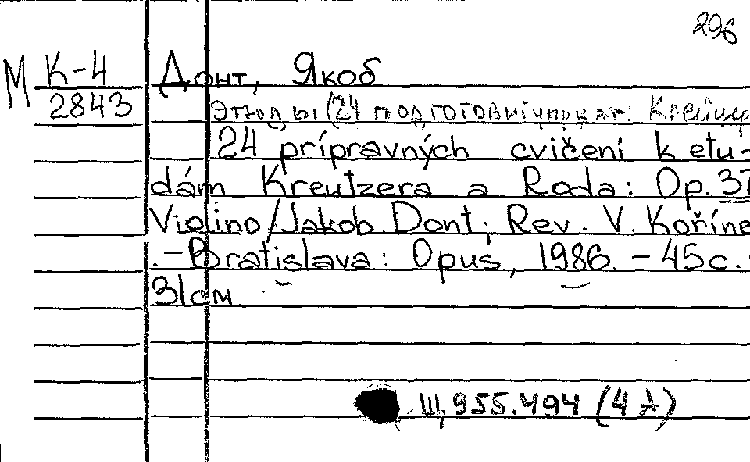 296
М К-4
2843
Донт, Якоб
Этюды (24 подготовит. упр. к эт. Крейцер
24 prípravných cvičení k etu-
dám Kreutzera a Roda: Op. 37
Violino/Jakob Dont; Rev. V. Koříne
.-Bratislava: Opus, 1986. - 45с.
31см
Ш, 955.494 (4 А)